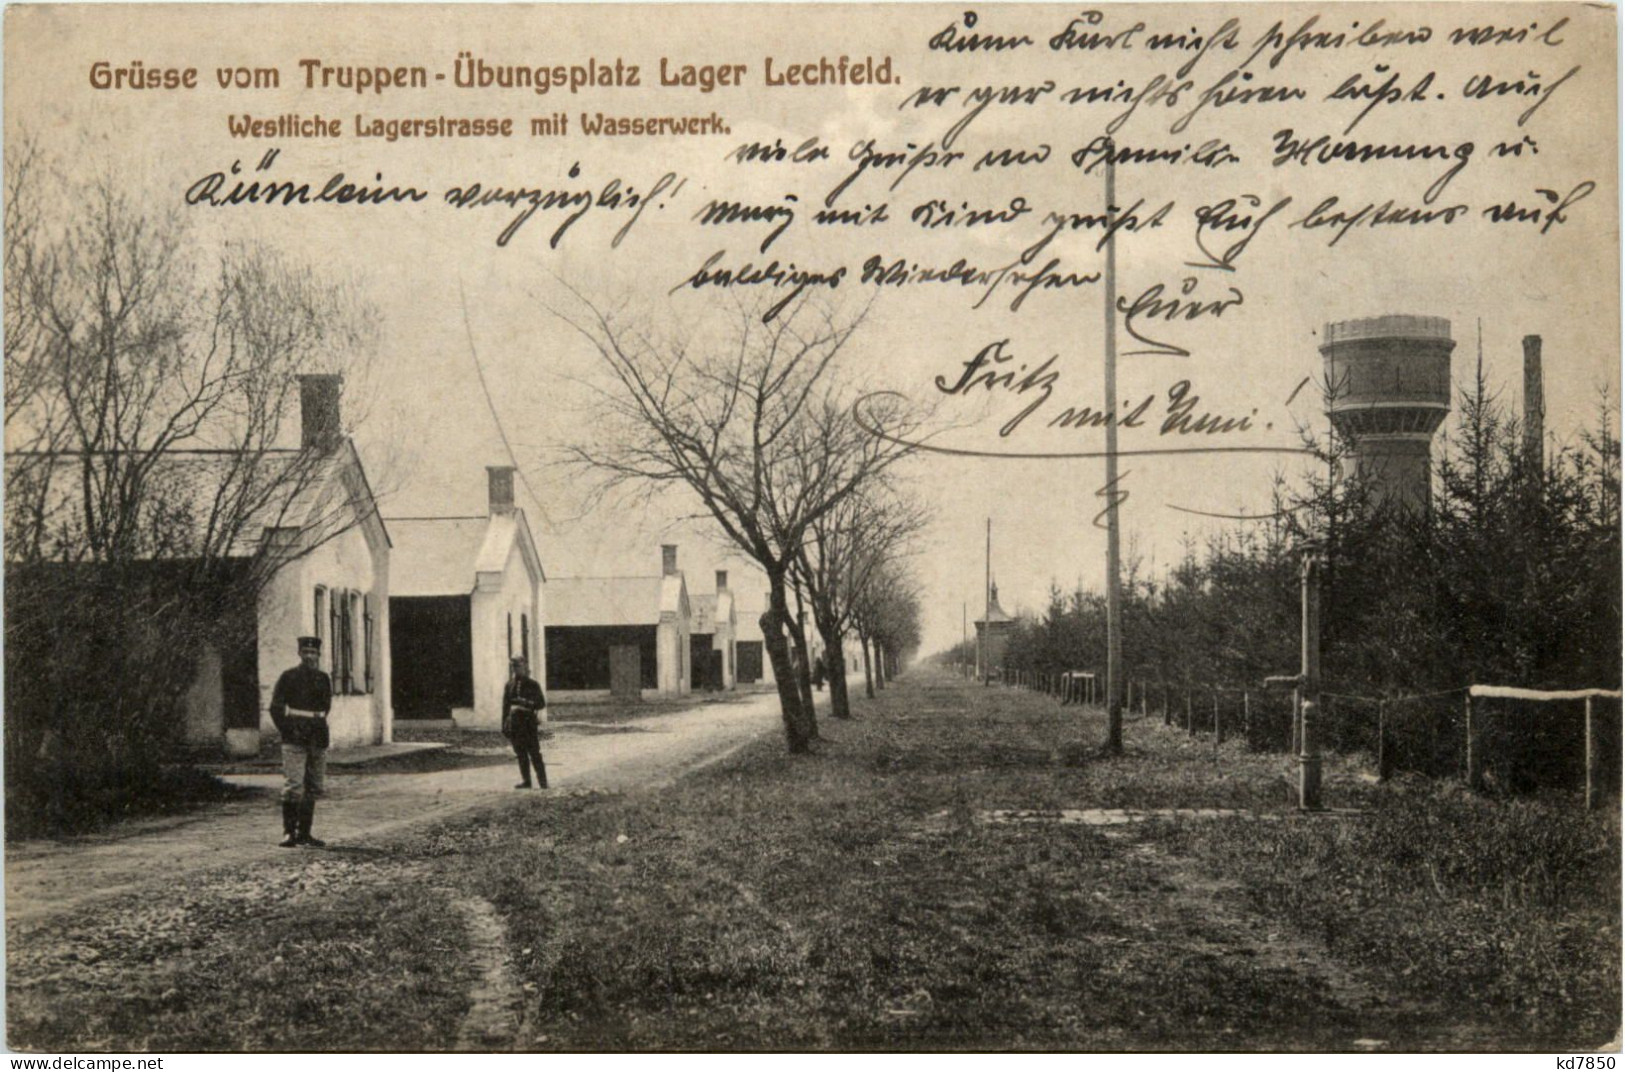 Grüsse vom Truppen-Übungsplatz Lager Lechfeld.
Westliche Lagerstrasse mit Wasserwerk.
Kann Karl nicht schreiben weil
er gar nichts hören läßt. Auch
viele Grüße an Familie Hornung u.
Kümlein vorzüglich!
Mary mit Kind grüßt Euch bestens auf
baldiges Wiedersehen
Euer
Fritz
mit
delcampe.net
kd7850